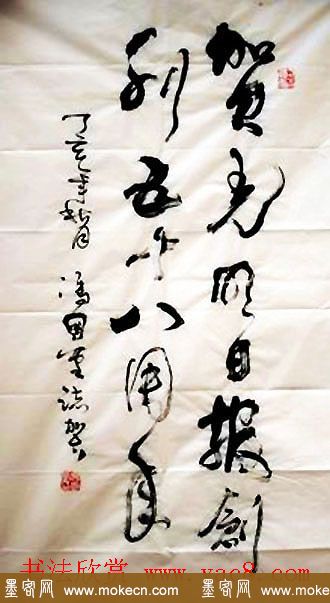 贺光明日报创
刊五十八周年
丁亥年秋月
书法欣赏 www.yac8.com
墨客网 www.mokecn.com 墨客网 www.mokecn.com